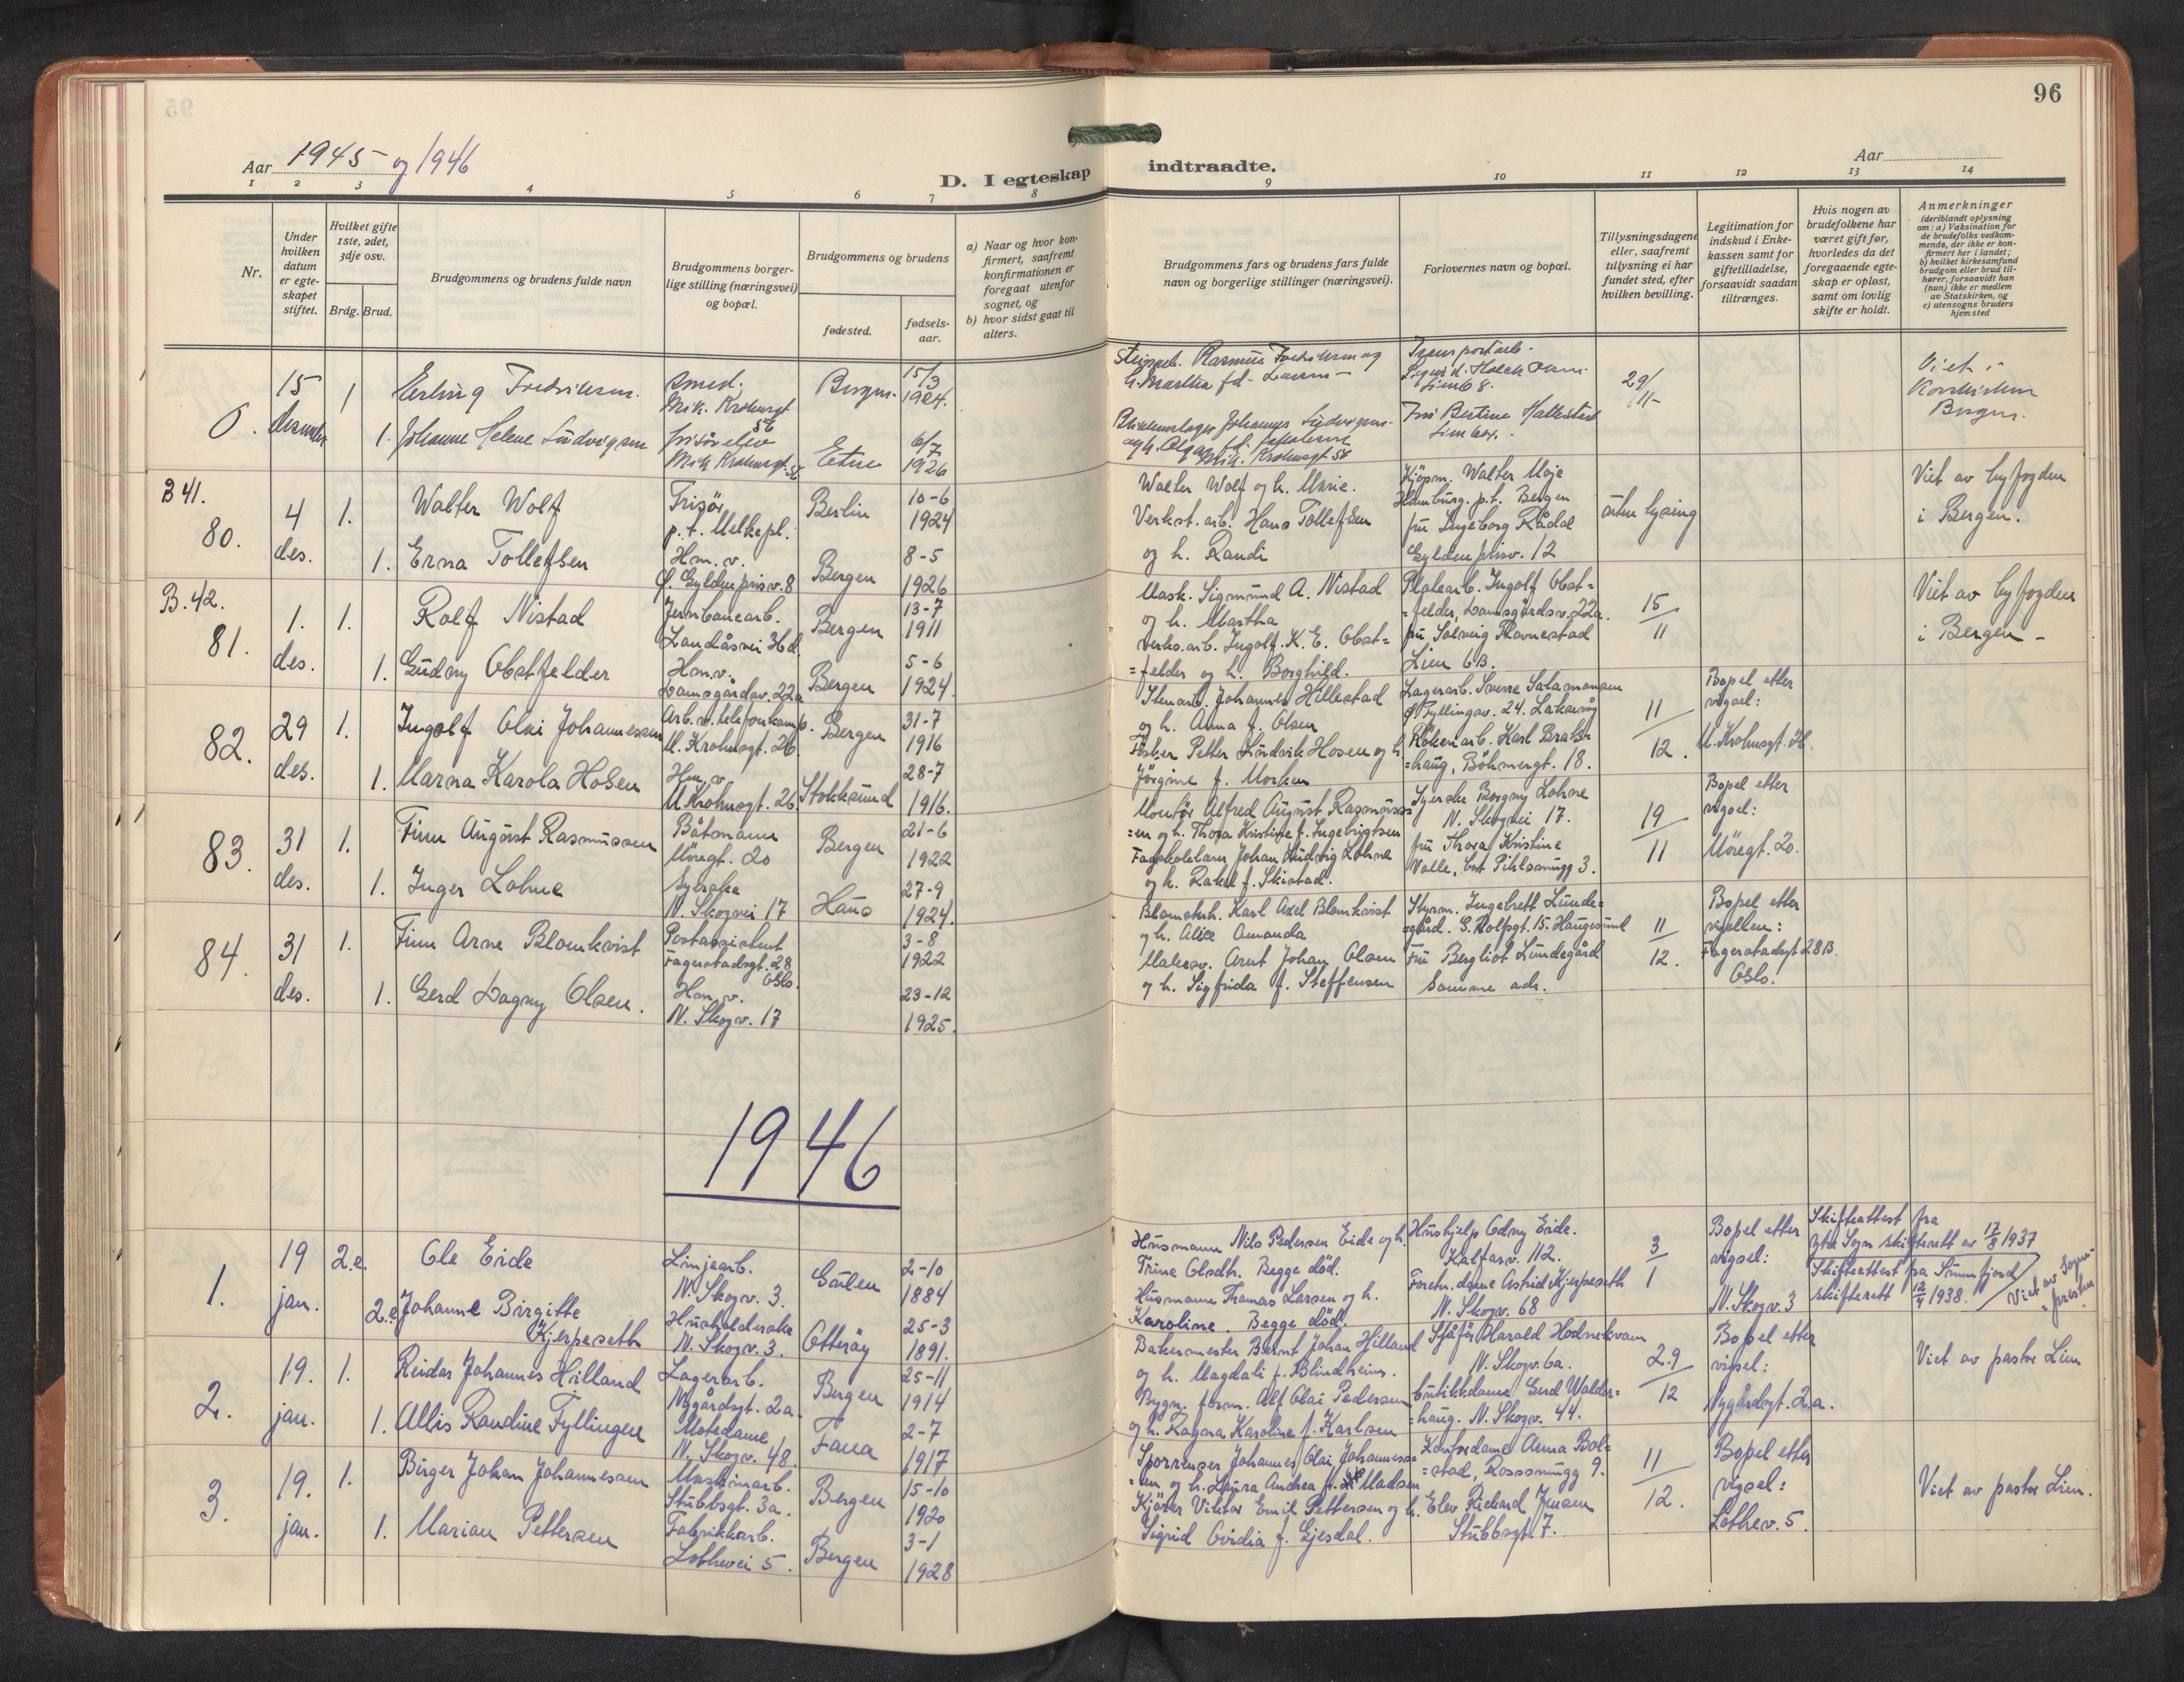 96
Aar 1945 og 1946
D. I egteskap indtraadte.
Aar
1 2 3 4 5 6 7 8 9 10 11 12 13 14
Nr.
Under hvilken datum er egteskapet stiftet.
Hvilket gifte 1ste, 2det, 3dje osv.
Brdg. Brud.
Brudgommens og brudens fulde navn
Brudgommens borgerlige stilling (næringsvei) og bopæl.
Brudgommens og brudens
fødested.
fødselsaar.
a) Naar og hvor konfirmert, saafremt konfirmationen er foregaat utenfor sognet, og
b) hvor sidst gaat til alters.
Brudgommens fars og brudens fars fulde navn og borgerlige stillinger (næringsvei).
Forlovernes navn og bopæl.
Tillysningsdagene eller, saafremt tillysning ei har fundet sted, efter hvilken bevilling.
Legitimation for indskud i Enkekassen samt for giftetilladelse, forsaavidt saadan tiltrænges.
Hvis nogen av brudefolkene har været gift før, hvorledes da det foregaaende egteskap er opløst, samt om lovlig skifte er holdt.
Anmerkninger (deriblandt oplysning om: a) Vaksination for de brudefolks vedkommende, der ikke er konfirmert her i landet; b) hvilket kirkesamfund brudgom eller brud tilhører, forsaavidt han (hun) ikke er medlem av Statskirken, og c) utensogns bruders hjemsted
0. 15 desember 1 Erling Fredriksen. Smed. Mik. Krohnsgt 56 Bergen. 15/3 1924. Rasmus Fredriksen og h. Martha fd. Larsen Transportarb. 29/11 Viet i Korskirken Bergen.
1. Johanne Helene Ludvigsen frisørelev Mik Krohnsgt. 56 Etne 6/7 1926 Blikkenslager Johannes Ludvigsen og h. Olga fd. Mik. Krohnsgt 56 Fru Bertine Hallestad
B 41.
80. 4 des. 1. Walter Wolf Frisør p.t. Melkepl. Berlin 10-6 1924 Walter Wolf og h. Marie. Kjöpm. Walter Moje Hamburg. p.t. Bergen uten lysing Viet av byfogden i Bergen.
1. Erna Tollefsen Hm. v. Ö. Gyldenprisv. 8 Bergen 8-5 1926 Verkst. arb. Hans Tollefsen og h. Randi fru Ingeborg Rådal Gyldenprisv. 12
B. 42.
81. 1. des. 1. Rolf Nistad Jernbanearb. Landåsvei 36d Bergen 13-7 1911 Mask. Sigmund A. Nistad og h. Martha Platearb. Ingolf Obst=felder, Damsgårdsv. 22a. 15/11 Viet av byfogden i Bergen -
1. Gudny Obstfelder Hm.v. Damsgårdsv. 22a Bergen 5-6 1924. Verks.arb. Ingolf. K. E. Obst=felder og h. Borghild. fru Solveig Ravnestad Lien 6B.
82. 29 des. 1. Ingolf Olai Johannessen Arb. v. telefonkomp. M. Krohnsgt. 26. Bergen 31-7 1916 Stenarb. Johannes Hillestad og h. Anna f. Olsen Lagerarb. Sverre Salamonsen Ö Fyllingsv. 24. Laksevåg 11/12. Bopel etter vigsel: M. Krohnsgt. 26.
1. Marna Karola Hosen Hm. v. M Krohnsgt. 26 Stokksund 28-7 1916. Fisker Petter Ludvik Hosen og h. Jörgine f. Morken Karl Brats=haug, Böhmergt. 18.
83. 31 des. 1. Finn August Rasmussen Båtsmann Möregt. 20 Bergen 21-6 1922 Montör Alfred August Rasmuss=en og h. Thora Kristine f. Ingebrigtsen Syerske Borgny Lohne N. Skogvei 17. 19/11 Bopel etter vigsel: Möregt. 20.
1. Inger Lohne Syerske N. Skogvei 17 Haus 27-9 1924. Johan Ludvig Lohne og h. Rakel f. Skistad. fru Thora Kristine Valle, 3.
84. 31 des. 1. Finn Arne Blomkvist Postassistent Fagerstadsgt. 28 Oslo. 3-8 1922 Karl Axel Blomkvist og h. Alice Amanda Styrm. Ingebrett Lunde=gård. G. Rolfsgt. 15. Haugesund 11/12. Bopel etter vielsen: Fagerstadsgt 28B. Oslo.
1. Gerd Dagny Olsen. Hm. v. N. Skogv. 17 23-12 1925. Malersv. Arnt Johan Olsen og h. Sigfrida f. Steffensen Fru Bergliot Lundegård Samme adr.
1946
1. 19 jan. 2.e. Ole Eide Linjearb. N. Skogv. 3. Gulen 2-10 1884 Husmann Nils Pedersen Eide og h. Trine Olsdtr. Begge död. Hushjelp Odny Eide. Kalfarv. 112. 3/1 Bopel etter vigsel: N. Skogv. 3 Skifteattest fra Ytre Sogn skifterett av 17/8 1937
2.e Johanne Birgitte Kjerpeseth Husholderske N. Skogv. 3. Otteröy 25-3 1891. Husmann Thomas Larsen og h. Karoline. Begge död. Forretn. dame Astrid Kjerpeseth N. Skogv. 68 Skifteattest fra Sunnfjord skifterett 12/4 1938. Viet av Sogne=presten
2. 19. jan. 1. Reidar Johannes Hilland Lagerarb. Nygårdsgt. 2a. Bergen 25-11 1914 Bakermester Bernt Johan Hilland og h. Magdali f. Blindheim. Sjåför Harald Hodnekvam N. Skogv. 6a. 29/12 Bopel etter vigsel: Nygårdsgt. 2.a. Viet av pastor Lim
1. Allis Randine Fyllingen Motedame N. Skogv. 48. Fana 2-7 1917 Bygn. form. Alf Olai Pedersen og h. Ragna Karoline f. Karlsen butikkdame Gerd Walder=haug. N. Skogv. 44.
3. 19. jan. 1. Birger Johan Johannessen Maskinarb. Stubbsgt. 3a. Bergen 15-10 1920 Sporrenser Johannes Olai Johanness=en og h. Laura Andrea f. Madsen Kontordame Anna Bol=stad, Rosesmugg 9. 11/12. Bopel etter vigsel: Lothev. 5. Viet av pastor Lim.
1. Marian Pettersen Fabrikkarb. Lothevei 5. Bergen 3-1 1928 Kjörer Viktor Emil Pettersen og h. Sigrid Ovidia f. Gjesdal. Elev Rickard Jensen Stubbsgt. 7.